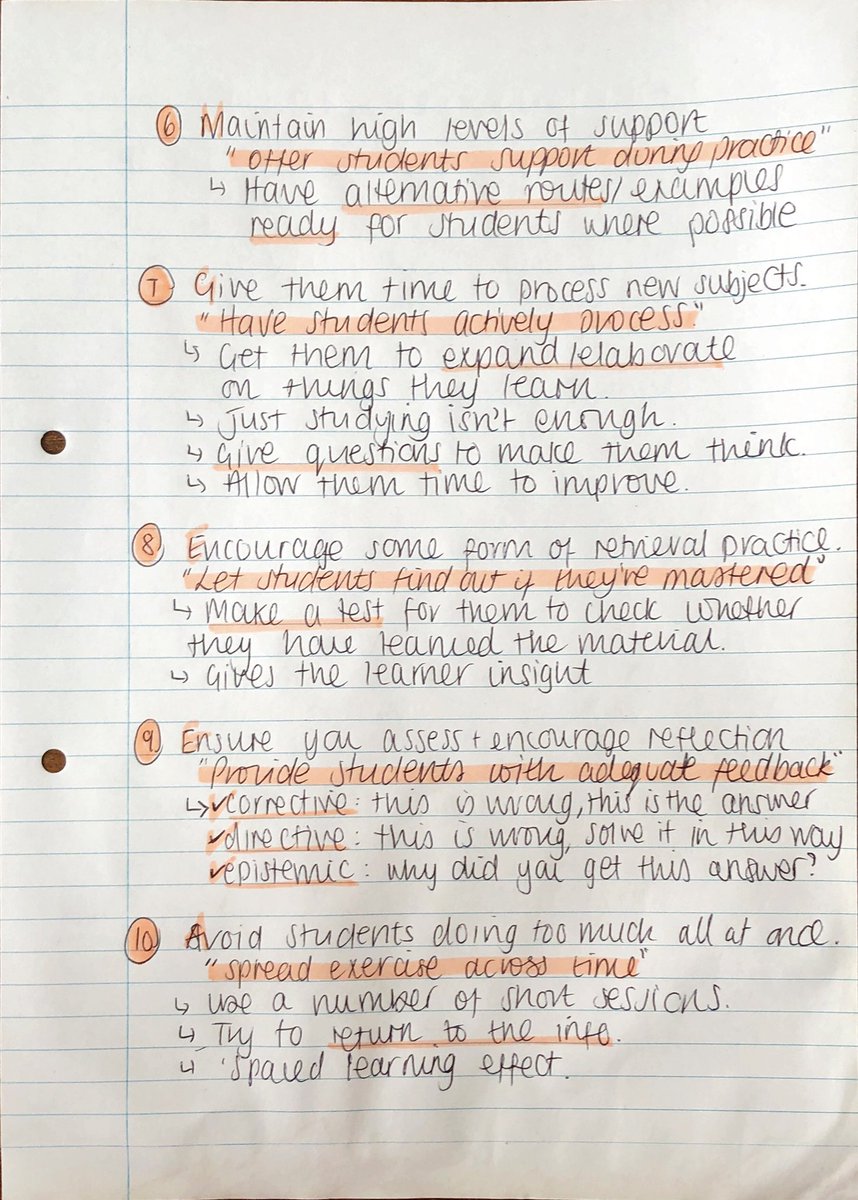 6 Maintain high levels of support
"Offer students support during practice"
↳ Have alternative routes/examples
ready for students where possible
7 Give them time to process new subjects.
"Have students actively process."
↳ Get them to expand/elaborate
on things they learn.
↳ Just studying isn't enough.
↳ Give questions to make them think.
↳ Allow them time to improve.
8 Encourage some form of retrieval practice.
"Let students find out if they're mastered"
↳ Make a test for them to check whether
they have learned the material.
↳ Gives the learner insight
9 Ensure you assess + encourage reflection
"Provide students with adequate feedback"
↳ ✓corrective: this is wrong, this is the answer
✓directive: this is wrong, solve it in this way
✓epistemic: why did you get this answer?
10 Avoid students doing too much all at once.
"spread exercise across time"
↳ Use a number of short sessions.
↳ Try to return to the info.
↳ 'Spaced learning effect.